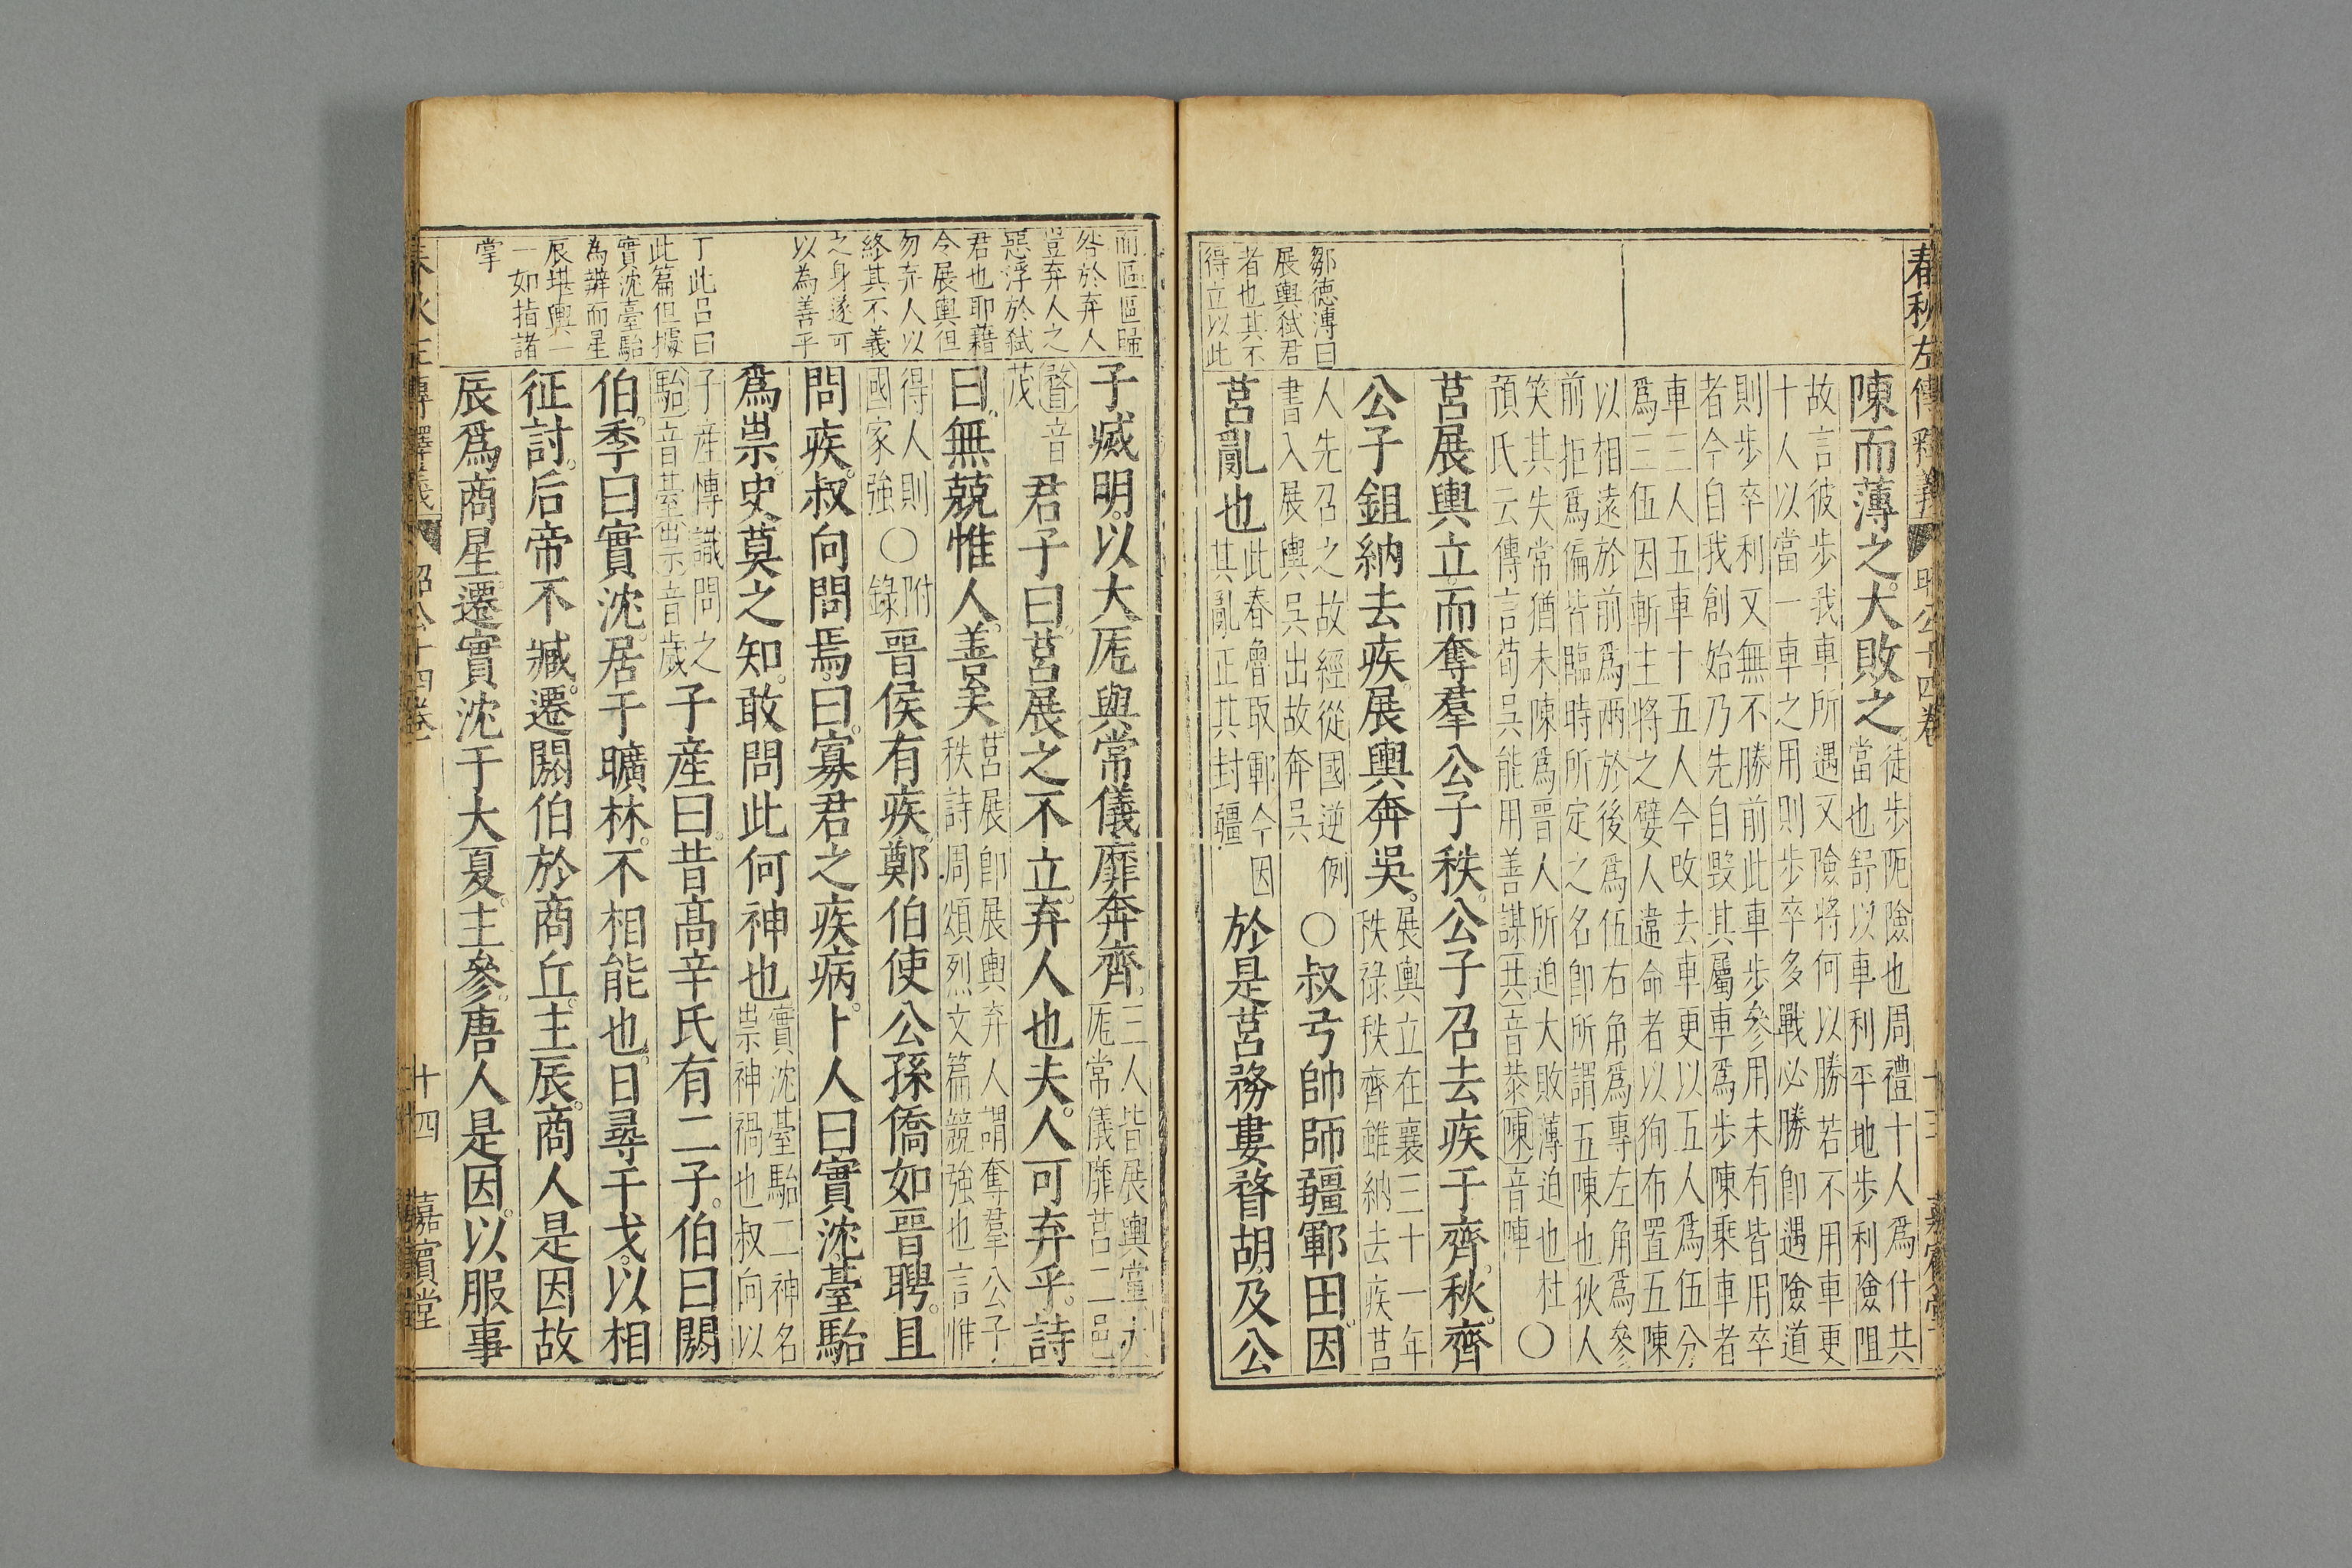 春秋左傳釋義
昭公十四卷
陳而薄之大敗之徒步阨險也周禮十人爲什共
當也舒以車利平地步利險阻
故言彼步我車所遇又險將何以勝若不用車更
十人以當一車之用則步卒多戰必勝即遇險道
則步卒利又無不勝前此車步參用未有皆用卒
者今自我創始乃先自毀其屬車爲步陳乘車者
車三人五車十五人今改去車更以五人爲伍分
爲三伍因斬主將之嬖人違命者以狥布置五陳
以相遠於前爲兩於後爲伍右角爲專左角爲參
前拒爲偏皆臨時所定之名即所謂五陳也狄人
笑其失常猶未陳爲晉人所迫大敗薄迫也杜
預氏云傳言荀吳能用善謀共音恭陳音陣〇
莒展輿立而奪羣公子秩公子召去疾于齊秋齊
公子鉏納去疾展輿奔吳展輿立在襄三十一年
秩祿秩齊雖納去疾莒
人先召之故經從國逆例
書入展輿吳出故奔吳
〇叔弓帥師疆鄆田因
莒亂也此春魯取鄆今因
其亂正其封疆
於是莒務婁瞀胡及公
鄒德溥曰
展輿弑君
者也其不
得立以此
而區區歸
咎於弃人
豈弃人之
惡浮於弑
君也耶藉
令展輿但
勿弃人以
終其不義
之身遂可
以為善乎
子滅明以大厖與常儀靡奔齊三人皆展輿黨大
厖常儀靡莒二邑
瞀音
茂
君子曰莒展之不立弃人也夫人可弃乎詩
曰無競惟人善矣莒展即展輿弃人謂奪羣公子
秩詩周頌烈文篇競強也言惟
得人則
國家強
〇附
錄
晉侯有疾鄭伯使公孫僑如晉聘且
問疾叔向問焉曰寡君之疾病卜人曰實沈臺駘
爲祟史莫之知敢問此何神也實沈臺駘二神名
祟神禍也叔向以
子產博識問之
駘音臺祟音歲
子産曰昔高辛氏有二子伯曰閼
伯季曰實沈居于曠林不相能也日尋干戈以相
征討后帝不臧遷閼伯於商丘主辰商人是因故
辰爲商星遷實沈于大夏主參唐人是因以服事
丁此呂曰
此篇但據
實沈臺駘
為辨而星
辰堪輿一
一如指諸
掌
昭公十四卷
十四
嘉賓堂